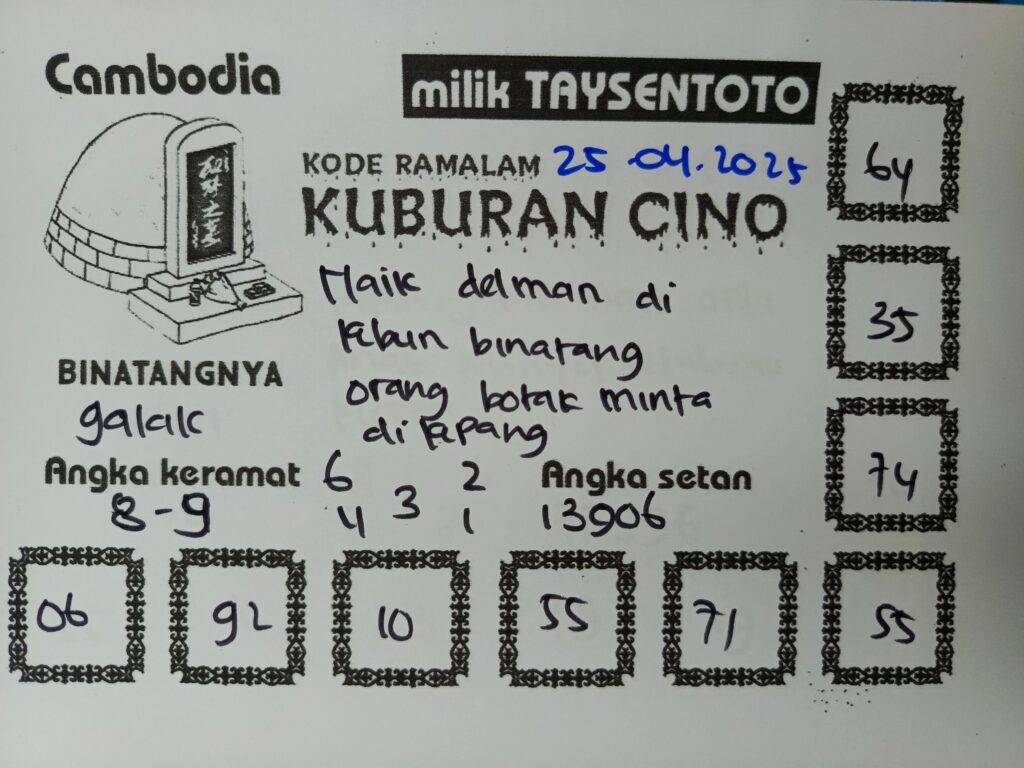 Cambodia
milik TAYSENTOTO
KODE RAMALAM 25.04.2025
KUBURAN CINO
Naik delman di
kebun binatang
orang botak minta
di kepang
BINATANGNYA
galak
Angka keramat
8-9
6 2
3
4 1
Angka setan
13906
64
35
74
06 92 10 55 71 55